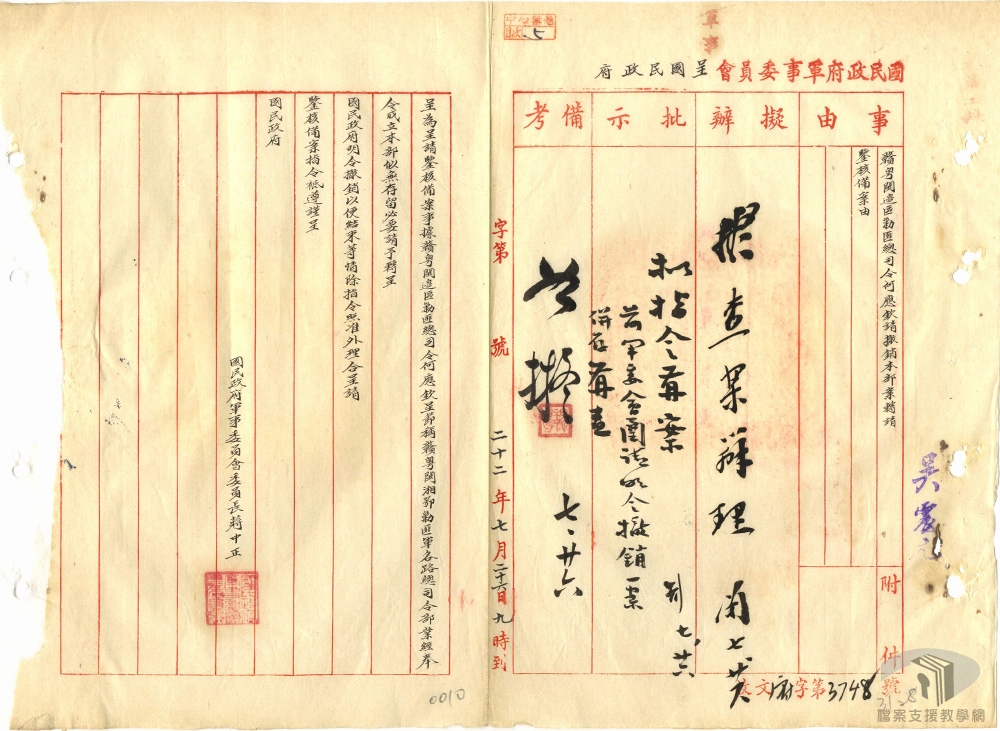 國民政府軍事委員會呈國民政府
事由
擬辦
批示
備考
贛粵閩邊區剿匪總司令何應欽請撤銷本部業轉請
鑒核備案由
附件
擬查案辦理
擬指令備案
併存備查
七、廿六
七、廿六
府文字第3748號
字第 號
二十二年七月二十六日九時到
呈為呈請鑒核備案事據贛粵閩邊區剿匪總司令何應欽呈節稱贛粵閩湘鄂剿匪軍各路總司令部業經奉
令成立本部似無存留必要請予轉呈
國民政府明令撤銷以便結束等情除指令照准外理合呈請
鑒核備案指令祇遵謹呈
國民政府
國民政府軍事委員會委員長蔣中正
0010
5
檔案支援教學網